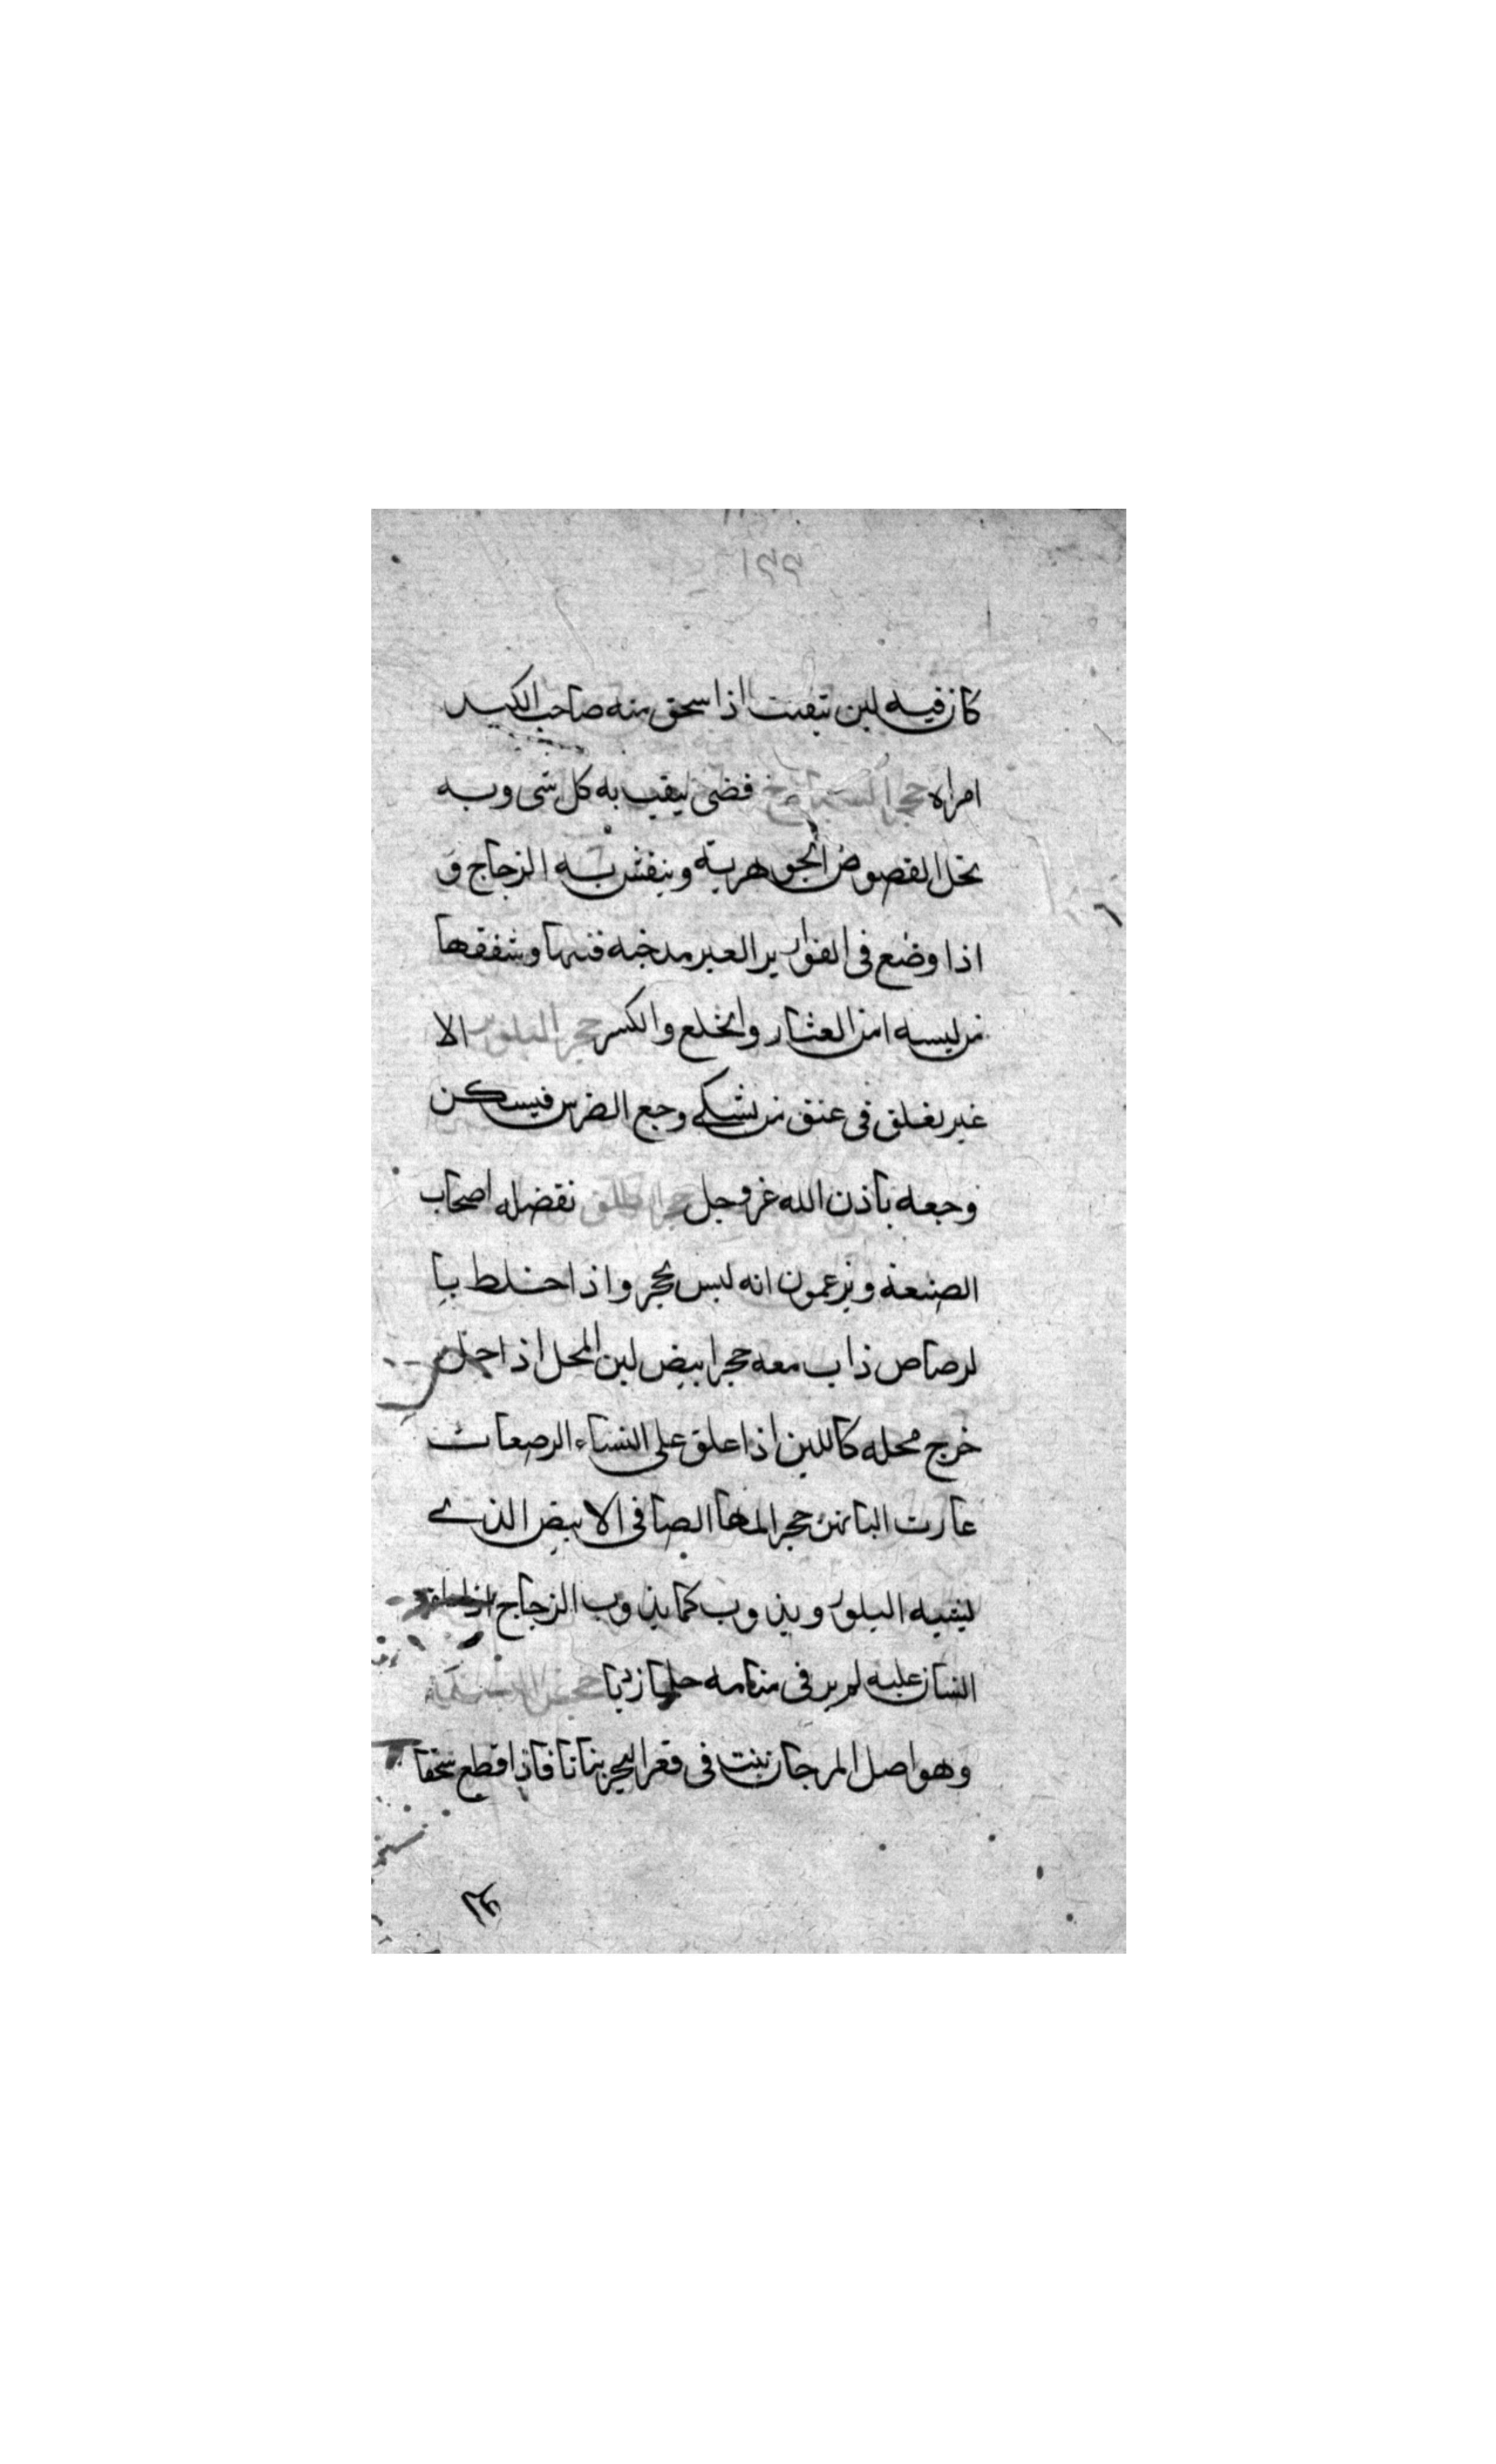 كان فيه لبن تيفيت اذا سحق منه صاحب الكبد
امراه حجر السنباذج فضى ينقب به كل شى وبه
تحل الفصوص الجوهرية وينقش به الزجاج و
اذا وضع فى القوارير الغير مدخنه فتتها وشققها
من لبسه امن العثار والخلع والكسر حجر البلور الا
غبر يعلق فى عنق من يشتكى وجع الضرس فيسكن
وجعه باذن الله عز وجل حجر الطلق نفضله اصحاب
الصنعة ويزعمون انه ليس بحجر واذا اختلط با
لرصاص ذاب معه حجر ابيض لين المحل اذا حل
خرج محله كاللبن اذا علق على النساء الرضعات
عارت البانهن حجر المها الصافى الابيض الذى
يشبه البلور ويذوب كما يذوب الزجاج اذا
انسان عليه لم ير فى منامه حلما زديا حجر
وهو اصل المرجان ينبت فى قعر البحر نباتا فاذا قطع سحقا